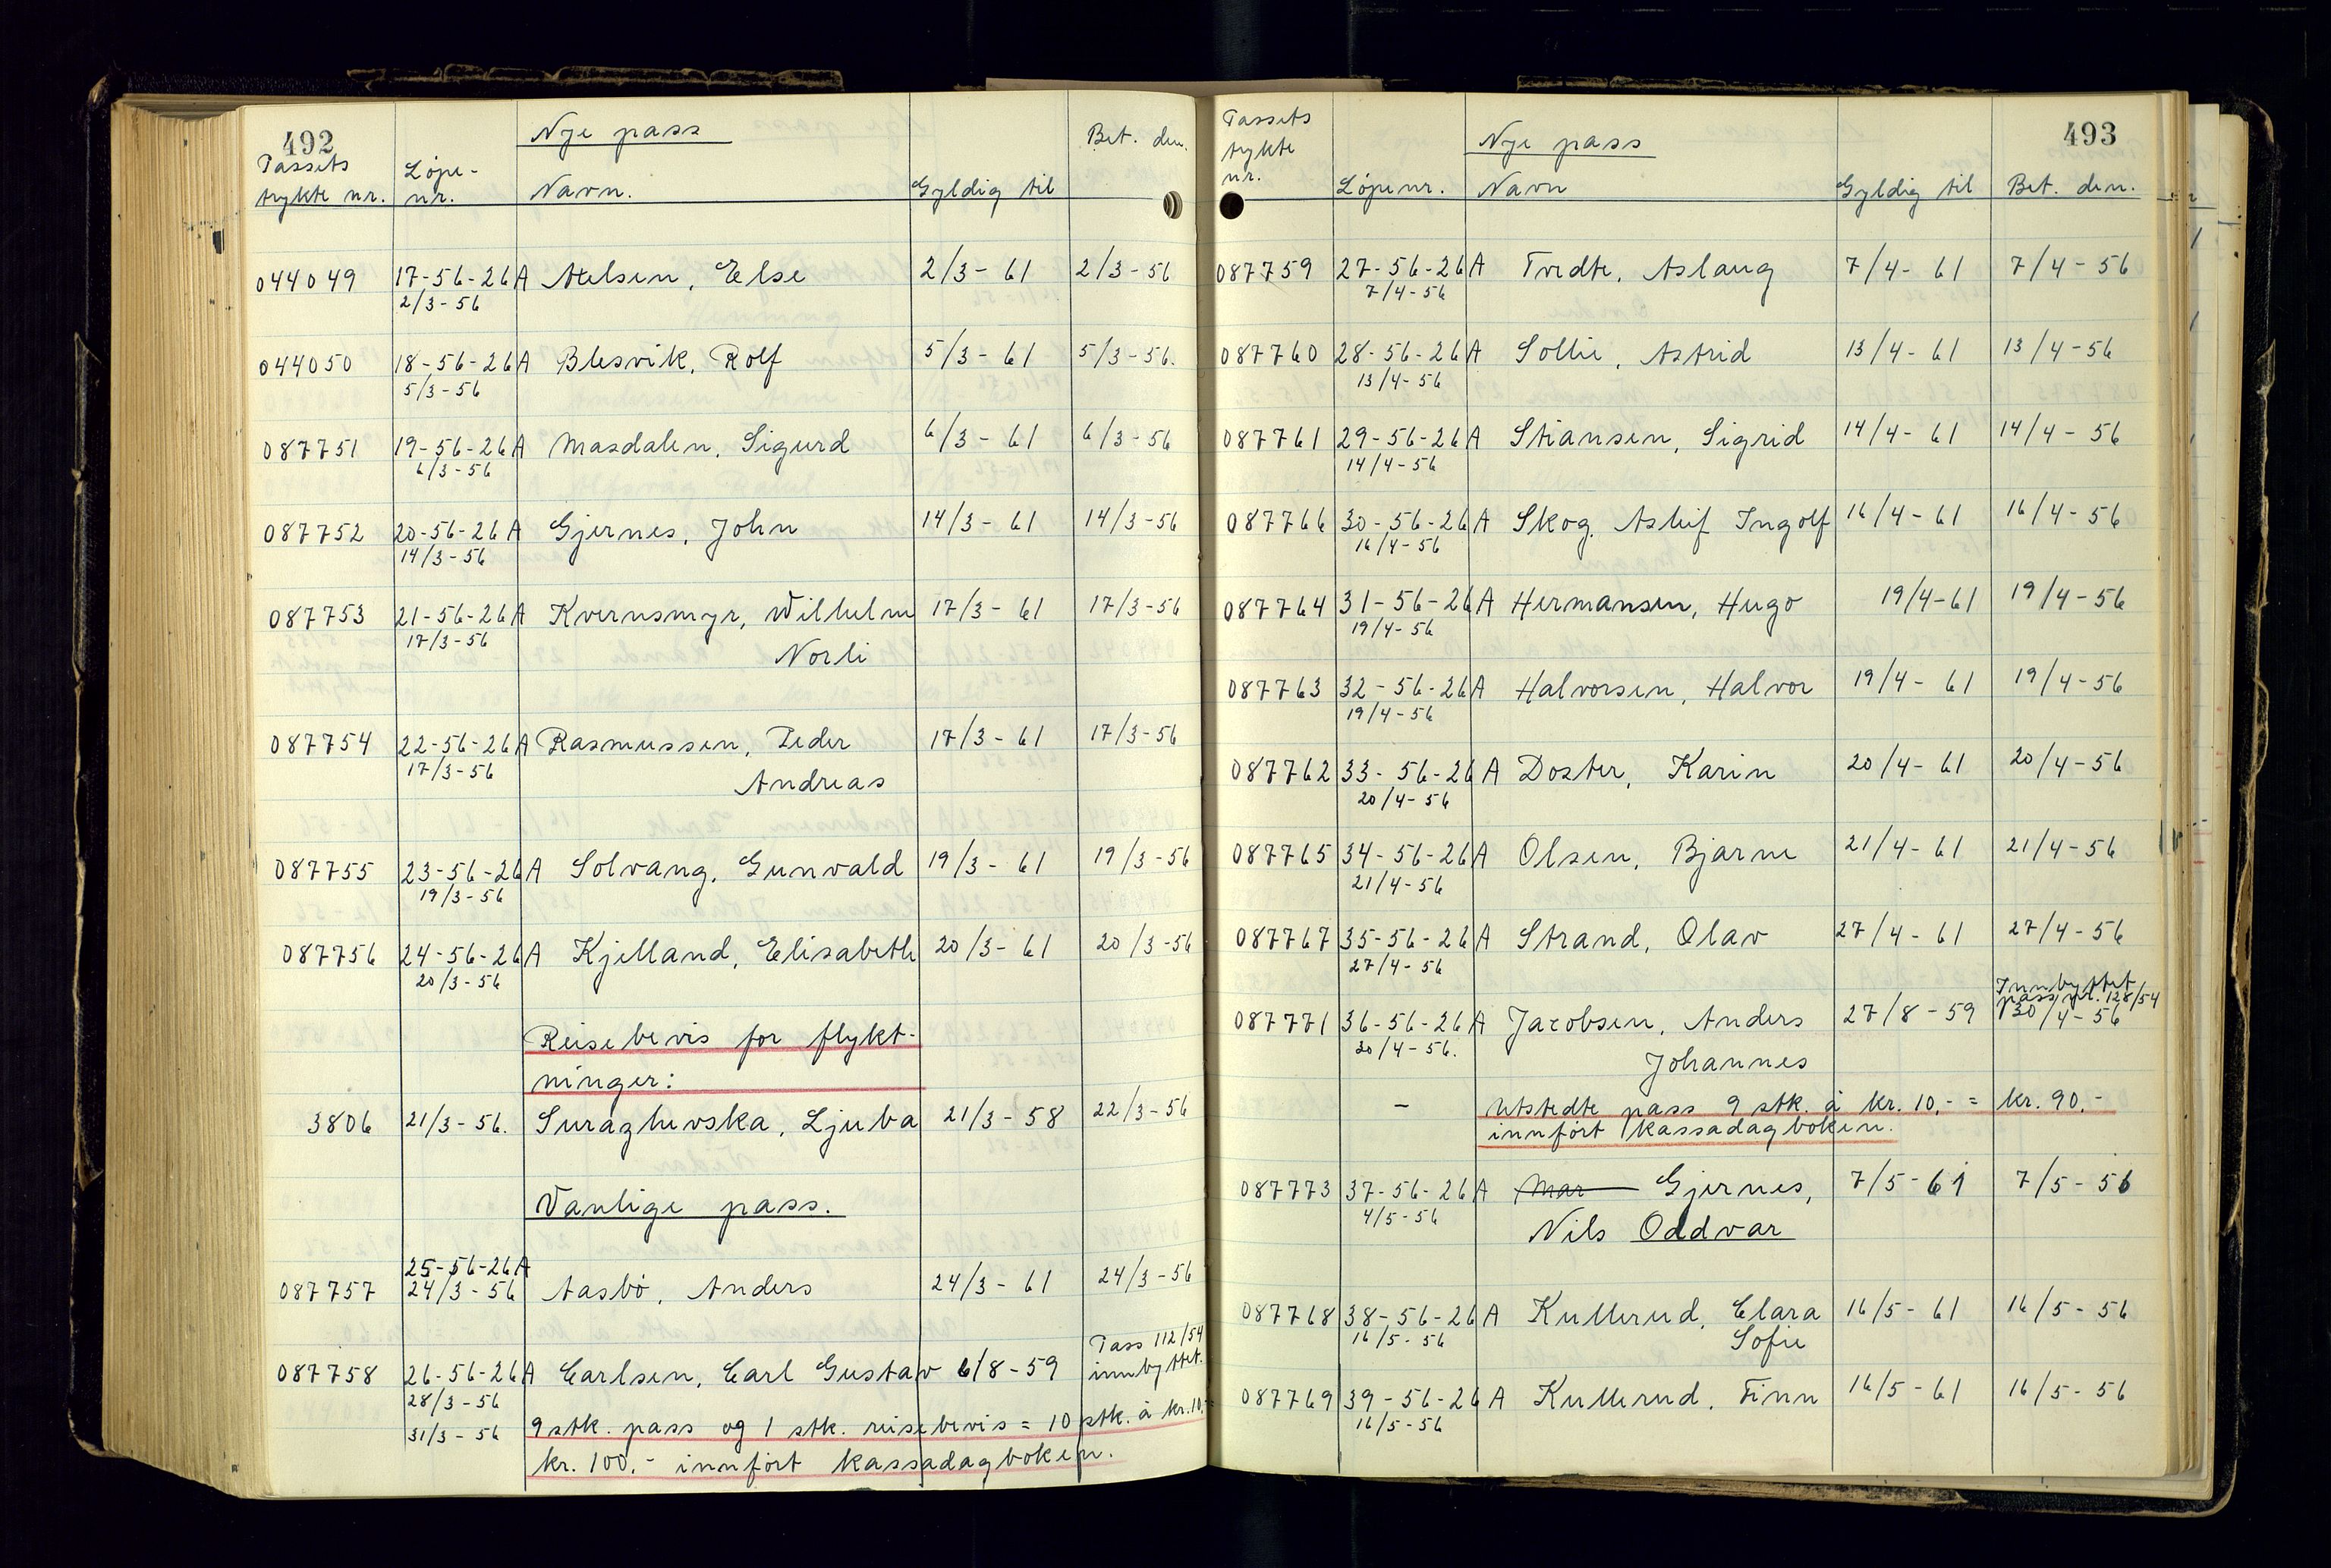 492
Nye pass
Passets trykte nr. Løpe-nr. Navn. Gyldig til Bet. den.
044049 17-56-26A Atelsen, Else 2/3 - 61 2/3 - 56
2/3-56
044050 18-56-26A Blesvik, Rolf 5/3 - 61 5/3-56.
5/3-56
087751 19-56-26A Masdalen, Sigurd 6/3 - 61 6/3-56
6/3-56
087752 20-56-26A Gjernes, John 14/3 - 61 14/3-56
14/3-56
087753 21-56-26A Kvernsmyr, Wilhelm 17/3 - 61 17/3-56
17/3-56 Norli
087754 22-56-26A Rasmussen, Peder 17/3 - 61 17/3-56
17/3-56 Andreas
087755 23-56-26A Solvang, Gunvald 19/3 - 61 19/3-56
19/3-56
087756 24-56-26A Kjelland, Elisabeth 20/3 - 61 20/3-56
20/3-56
Reisebevis for flykt-
ninger:
3806 21/3-56. Suraghevska, Ljuba 21/3 - 58 22/3-56
Vanlige pass.
25-56-26A
087757 24/3-56 Aasbø, Anders 24/3 - 61 24/3-56
Pass 112/54
087758 26-56-26A Carlsen, Carl Gustav 6/8-59 innbyttet.
28/3-56
31/3-56 9 stk. pass og 1 stk. reisebevis = 10 stk. à kr. 10.- =
kr. 100,- innført kassadagboken.
493
Nye pass
Passets trykte nr. Løpenr. Navn Gyldig til Bet. den.
087759 27-56-26A Tvedte, Aslaug 7/4 - 61 7/4-56
7/4-56
087760 28-56-26A Sollie, Astrid 13/4 - 61 13/4-56
13/4-56
087761 29-56-26A Stiansen, Sigrid 14/4 - 61 14/4 - 56
14/4-56
087766 30-56-26A Skog, Asleif Ingolf 16/4 - 61 16/4-56
16/4-56
087764 31-56-26A Hermansen, Hugo 19/4-61 19/4-56
19/4-56
087763 32-56-26A Halvorsen, Halvor 19/4 - 61 19/4-56
19/4-56
087762 33-56-26A Doster, Karin 20/4 - 61 20/4-56
20/4-56
087765 34-56-26A Olsen, Bjarne 21/4 - 61 21/4-56
21/4-56
087767 35-56-26A Strand, Olav 27/4 - 61 27/4-56
27/4-56
Innbyttet
pass nr. 128/54
087771 36-56-26A Jacobsen, Anders 27/8 - 59 30/4-56
30/4-56. Johannes
- Utstedte pass 9 stk. à kr. 10,- = kr. 90.-
innført kassadagboken.
087773 37-56-26A Mar Gjernes, 7/5-61 7/5-56
4/5-56 Nils Oddvar
087768 38-56-26A Kullerud, Clara 16/5-61 16/5-56
16/5-56 Sofie
087769 39-56-26A Kullerud, Finn 16/5-61 16/5-56
16/5-56